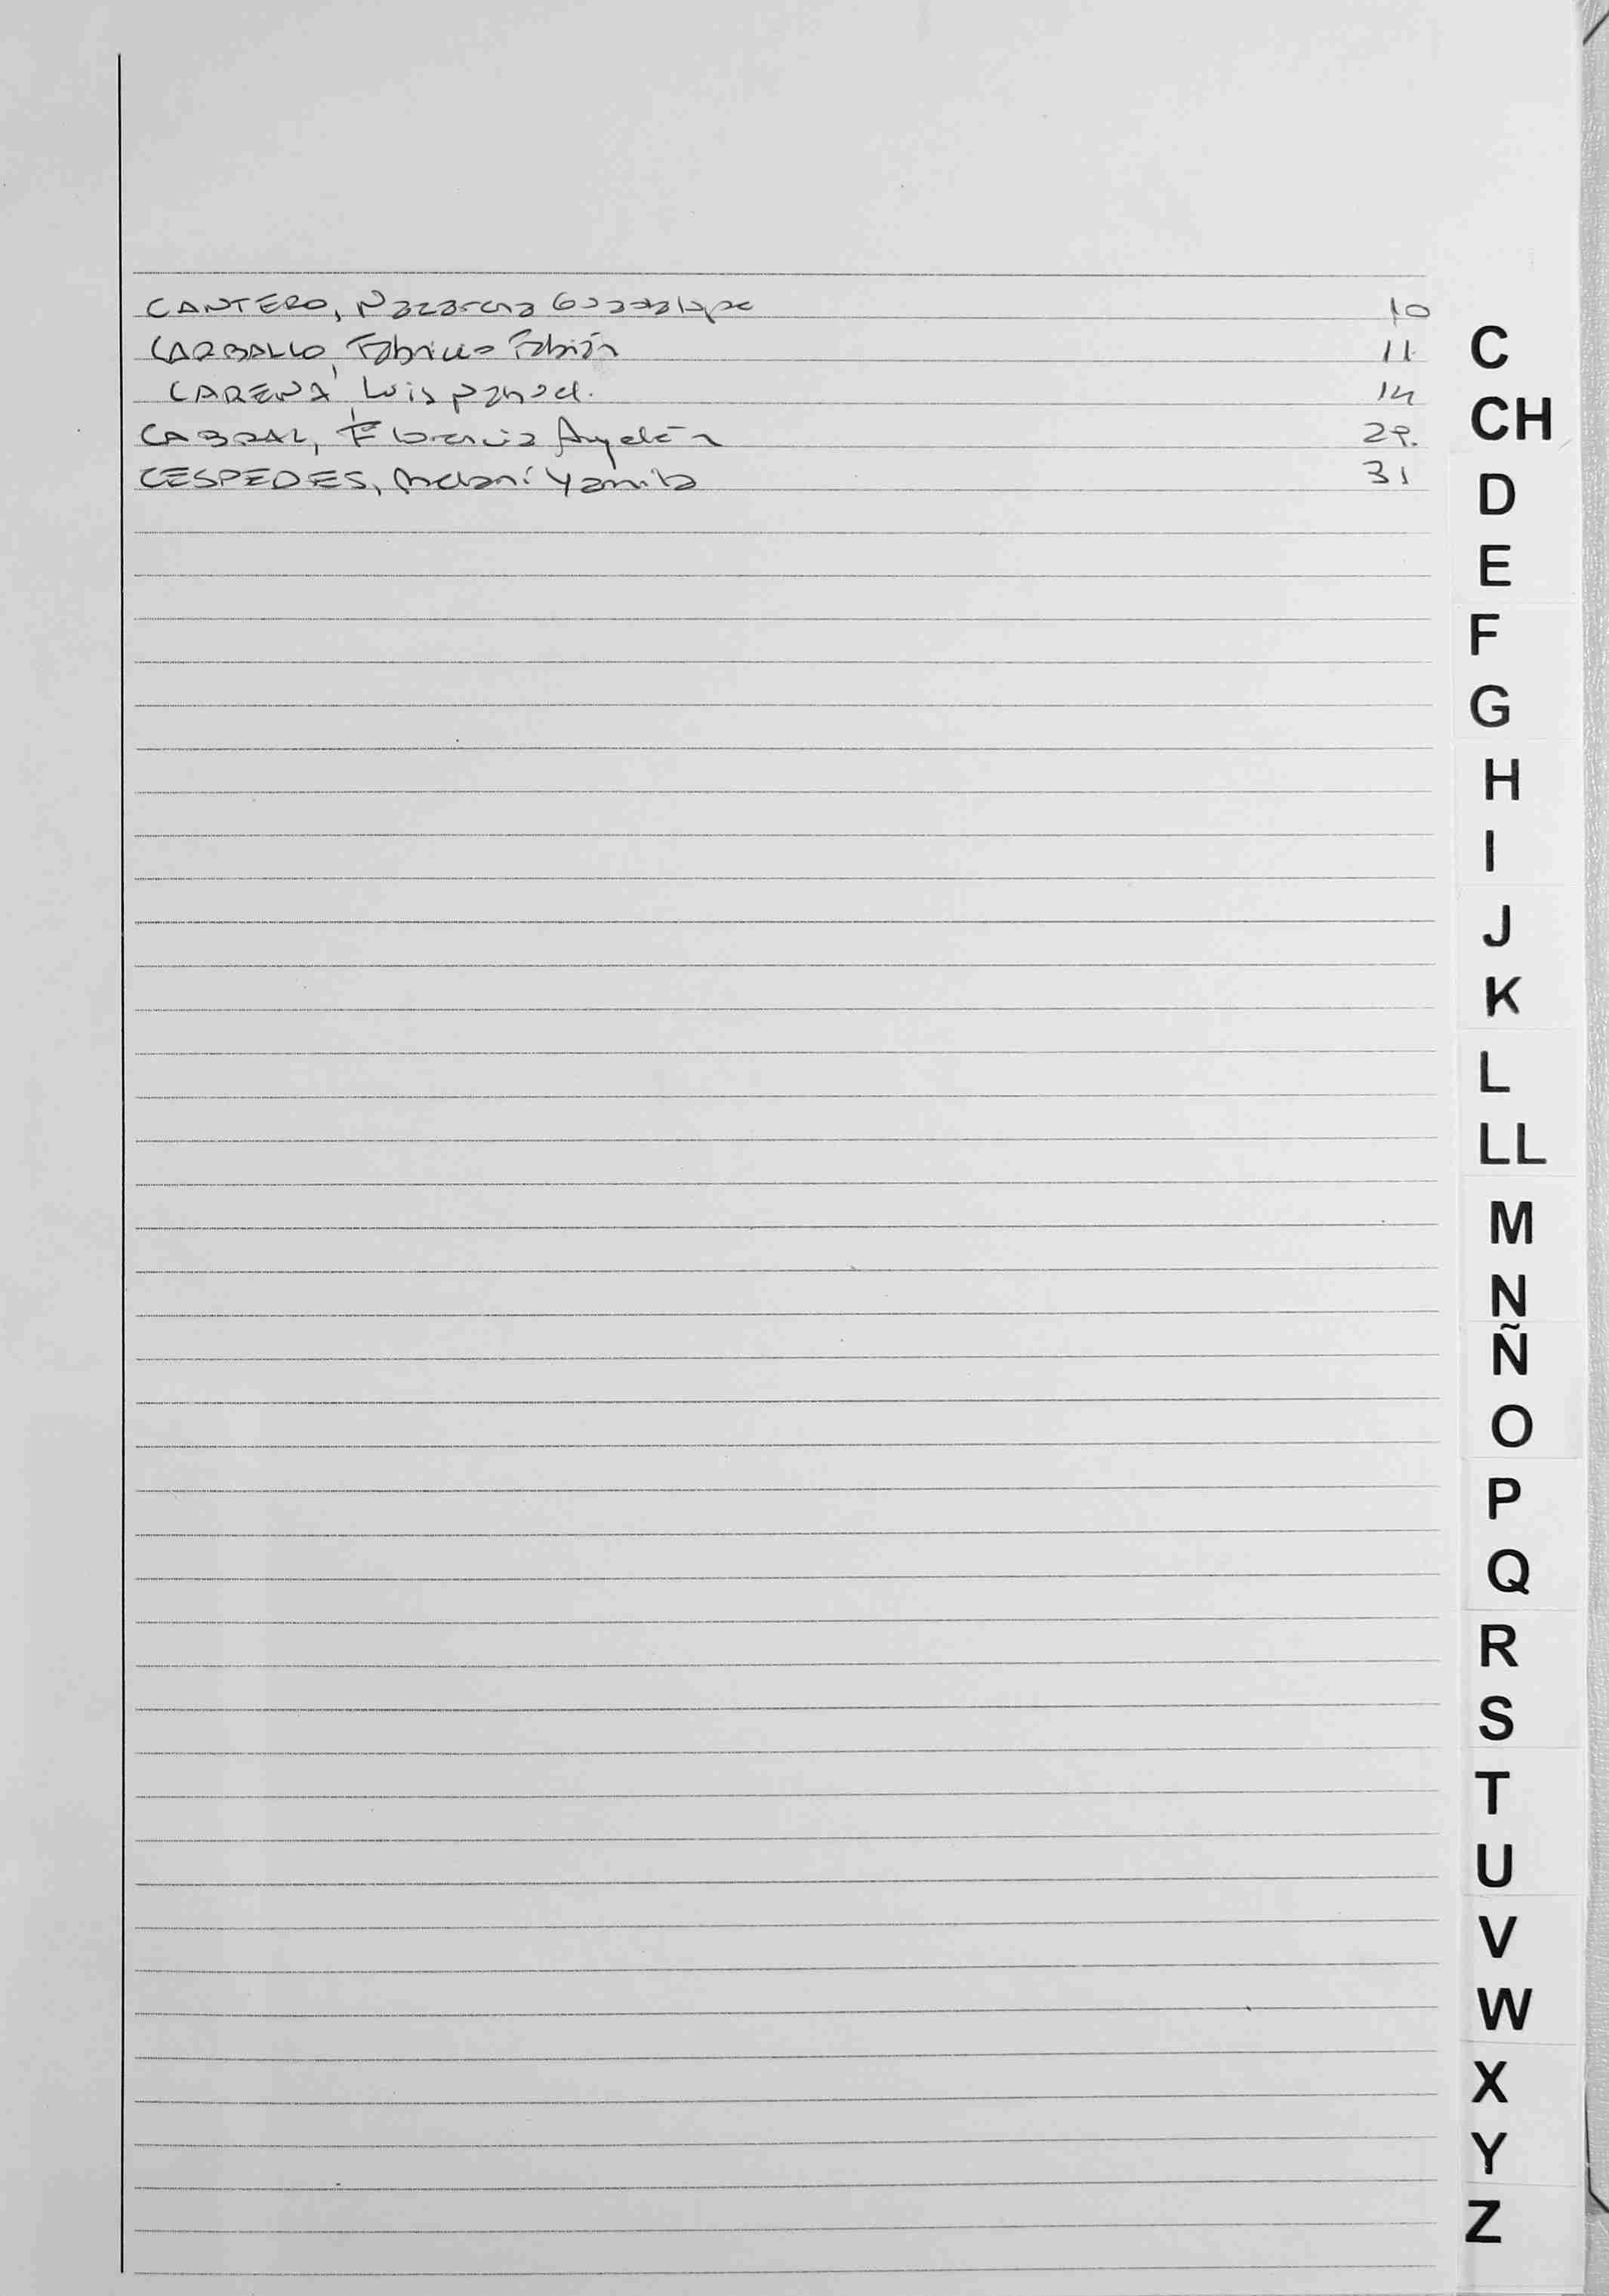 CANTERO, Nazarena Guadalupe 10
CARBALLO, Fabricio Fabián 11
CARENA, Luis Manuel. 14
CABRAL, Florencia Ayelén 29.
CESPEDES, Melaní Yamila 31
C
CH
D
E
F
G
H
I
J
K
L
LL
M
N
Ñ
O
P
Q
R
S
T
U
V
W
X
Y
Z